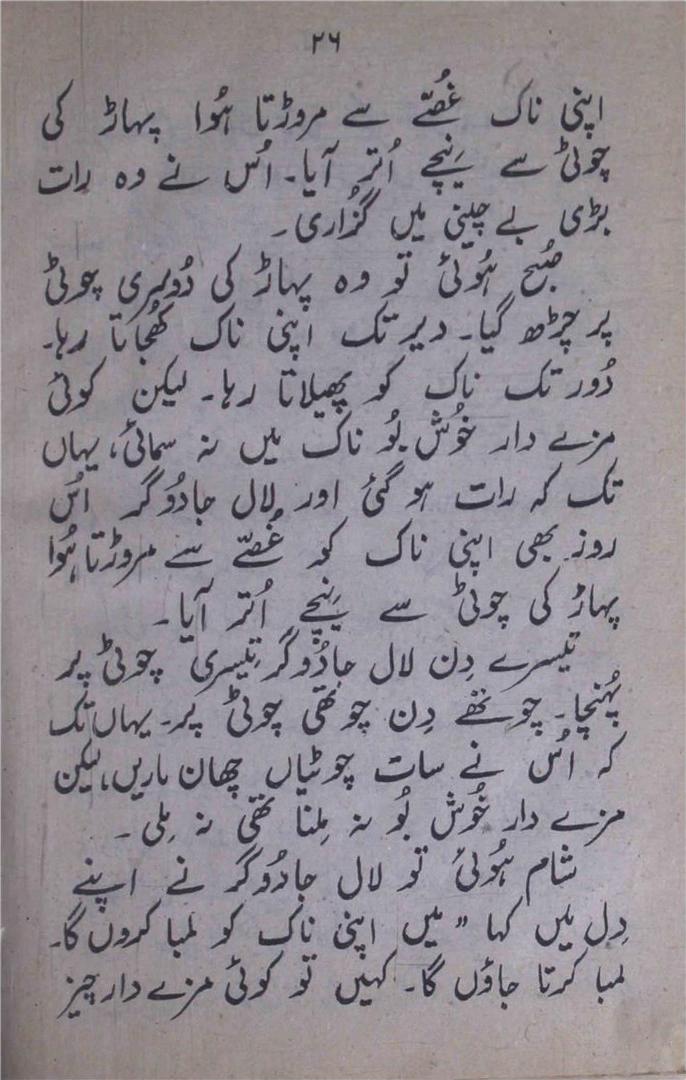 ۲۶
اپنی ناک غُصّے سے مروڑتا ہُوا پہاڑ کی
چوٹی سے نِیچے اُتر آیا۔ اُس نے وہ رات
بڑی بے چینی میں گُزاری۔
صُبح ہُوئی تو وہ پہاڑ کی دُوسری چوٹی
پر چڑھ گیا۔ دیر تک اپنی ناک کھُجاتا رہا۔
دُور تک ناک کو پھیلاتا رہا۔ لیکن کوئی
مزے دار خُوش بُو ناک میں نہ سمائی، یہاں
تک کہ رات ہو گئی اور لال جادُوگر اُس
روز بھی اپنی ناک کو غُصّے سے مروڑتا ہُوا
پہاڑ کی چوٹی سے نِیچے اُتر آیا۔
تیسرے دِن لال جادُوگر تیسری چوٹی پر
پُہنچا۔ چوتھے دِن چوتھی چوٹی پر۔ یہاں تک
کہ اُس نے سات چوٹیاں چھان ماریں، لیکن
مزے دار خُوش بُو نہ مِلنا تھی نہ مِلی۔
شام ہُوئی تو لال جادُوگر نے اپنے
دِل میں کہا "میں اپنی ناک کو لمبا کروں گا۔
لمبا کرتا جاؤں گا۔ کہیں تو کوئی مزے دار چیز